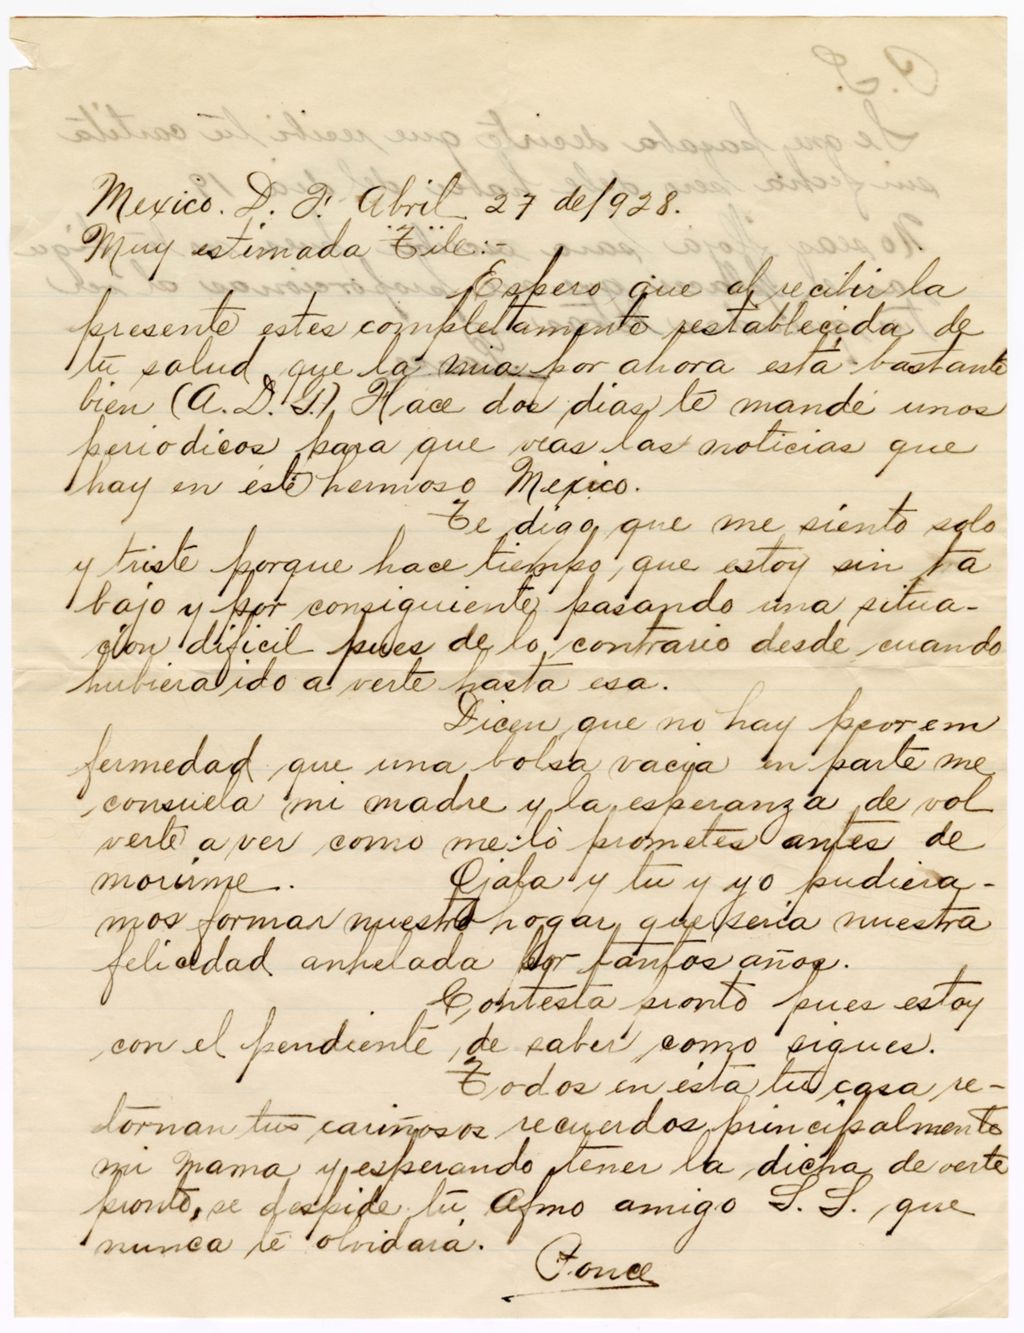 Mexico. D. F. Abril 27 de 1928.
Muy estimada Tile:-
Espero que al recibir la
presente estes completamente restablecida de
tú salud que la mia por ahora está bastante
bien (A. D. G.). Hace dos dias te mandé unos
periodicos para que veas las noticias que
hay en éste hermoso Mexico.
Te digo que me siento solo
y triste porque hace tiempo, que estoy sin tra
bajo y por consiguiente pasando una situa-
cion dificil pues de lo contrario desde cuando
hubiera ido a verte hasta esa.
Dicen que no hay peor em
fermedad que una bolsa vacia en parte me
consuela mi madre y la esperanza de vol
verte a ver como me lo prometes antes de
morirme. Ojala y tu y yo pudiera-
mos formar nuestro hogar que seria nuestra
felicidad anhelada por tantos años.
Contesta pronto pues estoy
con el pendiente de saber como sigues.
Todos en ésta tu casa re-
tornan tus cariñosos recuerdos principalmente
mi mama y esperando tener la dicha de verte
pronto, se despide tú Afmo amigo S. S. que
nunca te olvidará.
Ponce
P. S.